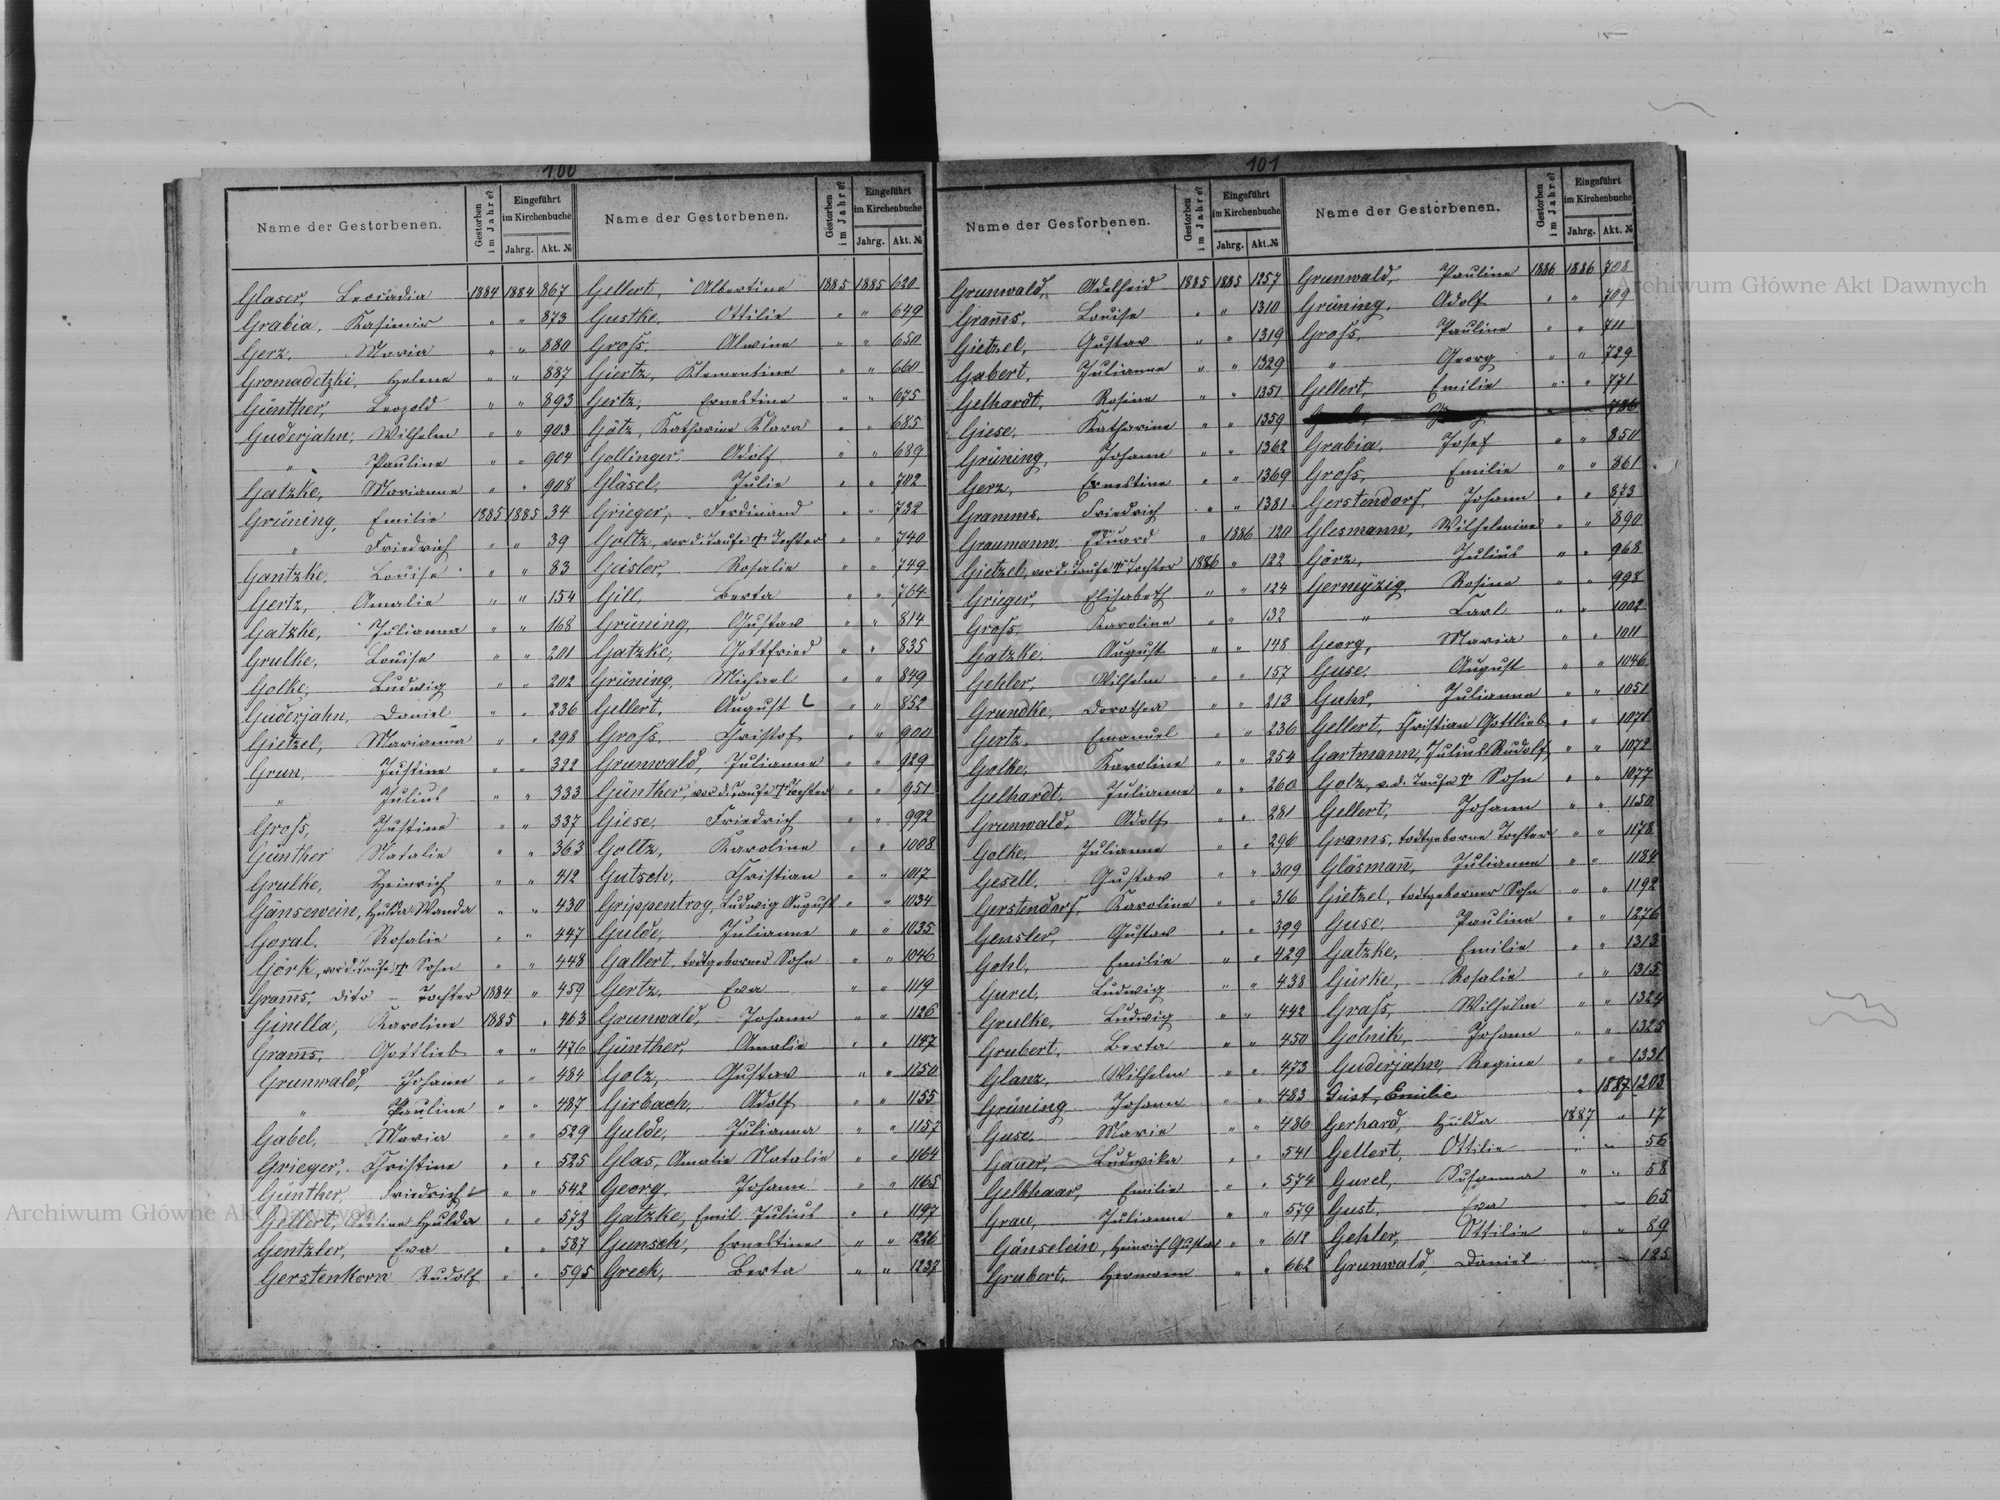 100
Name der Gestorbenen. Gestorben im Jahre? Eingeführt im Kirchenbuche Jahrg. Akt. №
Glaser, Leocadia 1884 1884 867
Grabia, Kasimir " " 873
Gerz, Maria " " 880
Gromadetzki, Helene " " 887
Günther, Leopold " " 893
Guderjahn, Wilhelm " " 903
" Pauline " " 904
Gatzke, Marianne " " 908
Grüning, Emilie 1885 1885 34
" Friedrich " " 39
Gantzke, Louise " " 83
Gertz, Amalie " " 154
Gatzke, Julianna " " 168
Grulke, Louise " " 201
Golke, Ludwig " " 202
Guderjahn, Daniel " " 236
Gietzel, Marianna " " 298
Grun, Justine " " 322
" Julius " " 333
Groß, Justine " " 337
Günther Natalie " " 363
Grulke, Heinrich " " 412
Gänsewein, Hulda Wanda " " 430
Goral, Rosalie " " 447
Görk, vor d. Taufe † Sohn " " 448
Gram̅s, dito – Tochter 1884 " 459
Ginella, Karoline 1885 " 463
Gram̅s, Gottlieb " " 476
Grunwald, Johann " " 484
" Pauline " " 487
Gabel, Maria " " 529
Grieger, Christine " " 525
Günther, Friedrich " " 542
Gellert, Hulda " " 573
Gentzler, Eva " " 587
Gerstenkorn Rudolf " " 595
Name der Gestorbenen. Gestorben im Jahre? Eingeführt im Kirchenbuche Jahrg. Akt. №
Gellert, Albertine 1885 1885 620
Gustke, Ottilie " " 649
Groß, Alwine " " 650
Giertz, Klementine " " 660
Gertz, Ernestine " " 675
Götz, Katharina Klara " " 685
Gollinger, Adolf " " 689
Gläsel, Julie " " 702
Grieger, Ferdinand " " 732
Goltz, vor d. Taufe † Tochter " " 740
Geisler, Rosalie " " 749
Gill, Berta " " 764
Grüning, Gustav " " 814
Gatzke, Gottfried " " 835
Grüning, Michael " " 849
Gellert, August " " 852
Groß, Christof " " 900
Grunwald, Julianne " " 929
Günther, vor d. Taufe † Tochter " " 951
Giese, Friedrich " " 992
Goltz, Karoline " " 1008
Gutsch, Christian " " 1017
Grippentrog, Ludwig August " " 1034
Gulde, Julianne " " 1035
Gallert, todtgeborner Sohn " " 1046
Gertz, Eva " " 1119
Grunwald, Johann " " 1126
Günther, Amalie " " 1147
Golz, Gustav " " 1150
Girbach, Adolf " " 1155
Gulde, Julianna " " 1157
Glas, Amalie Natalie " " 1164
Georg, Johann " " 1165
Gatzke, Emil Julius " " 1197
Gunsch, Ernestine " " 1226
Greck, Berta " " 1237
101
Name der Gestorbenen. Gestorben im Jahre? Eingeführt im Kirchenbuche Jahrg. Akt. №
Grunwald, Adelheid 1885 1885 1257
Gram̅s, Louise " " 1310
Gietzel, Gustav " " 1319
Gabert, Julianne " " 1329
Gelhardt, Rosine " " 1351
Giese, Katharine " " 1359
Grüning, Johann " " 1362
Gerz, Ernestine " " 1369
Gramms, Friedrich " " 1381
Graumann, Eduard " 1886 120
Gietzel, vor d. Taufe † Tochter 1886 " 122
Grieger, Elisabeth " " 124
Groß, Karoline " " 132
Gatzke, August " " 148
Gehler, Wilhelm " " 157
Grundke, Dorothea " " 213
Gertz, Emanuel " " 236
Golke, Karoline " " 254
Gelhardt, Julianne " " 260
Grunwald, Adolf " " 281
Golke, Julianne " " 296
Gesell, Gustav " " 309
Gerstendorf, Karoline " " 316
Gensler, Gustav " " 399
Gohl, Emilie " " 429
Gurel, Ludwig " " 438
Grulke, Ludwig " " 442
Grubert, Berta " " 450
Glanz, Wilhelm " " 473
Grüning Johann " " 483
Guse, Marie " " 486
Gauer, Ludwika " " 541
Gelbhaar, Emilie " " 574
Grau, Julianne " " 579
Gänselein, Heinrich Gustav " " 612
Grubert, Hermann " " 662
Name der Gestorbenen. Gestorben im Jahre? Eingeführt im Kirchenbuche Jahrg. Akt. №
Grunwald, Pauline 1886 1886 708
Grüning, Adolf " " 709
Groß, Pauline " " 711
" Georg " " 729
Gellert, Emilie " " 771
786
Grabia, Josef " " 850
Groß, Emilie " " 861
Gerstendorf, Johann " " 873
Glesmann, Wilhelmine " " 890
Görz, Julius " " 968
Rosine " " 998
" Carl " " 1002
Georg, Maria " " 1011
Guse, August " " 1046
Guhr, Julianne " " 1051
Gellert, Christian Gottlieb " " 1071
Gartmann, Julius Rudolf " " 1072
Golz, v. d. Taufe † Sohn " " 1077
Gellert, Johann " " 1150
Grams, todtgeborne Tochter " " 1178
Gläsman̅, Julianne " " 1184
Gietzel, todtgeborner Sohn " " 1192
Guse, Pauline " " 1276
Gatzke, Emilie " " 1313
Gürke, Rosalie " " 1315
Graß, Wilhelm " " 1324
Golnik, Johann " " 1325
Guderjahn, Regine " " 1331
Geist, Emilie " 1887 1203
Gerhard, Hulda 1887 " 17
Gellert, Ottilie " " 56
Gurel, Susanna " " 58
Gust, Eva " " 65
Gehler, Ottilie " " 89
Grunwald, Daniel " " 125
Archiwum Główne Akt Dawnych
Archiwum Główne Akt Dawnych